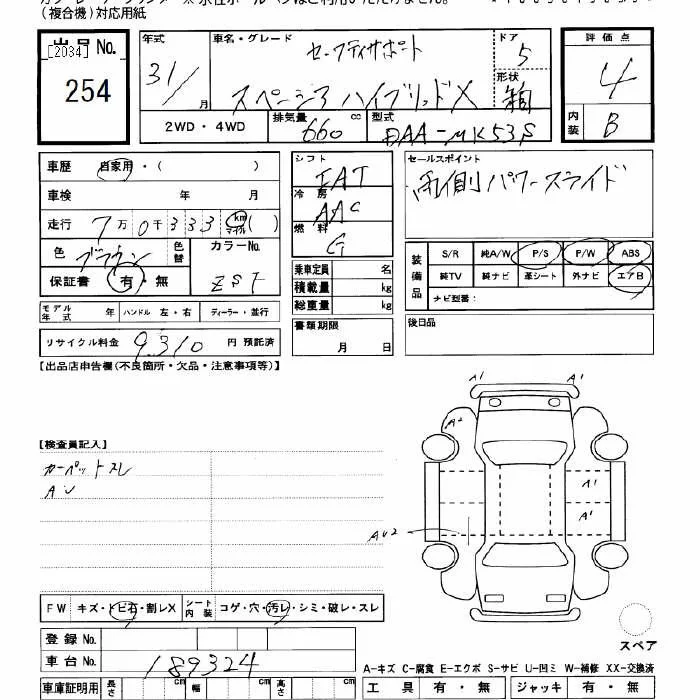 (複合機)対応用紙
出品No.
[2034]
254
年式
31/
月
車名・グレード
セーフティサポート
スペーシア ハイブリッドX
ドア
5
形状
箱
評価点
4
内装
B
2WD・4WD
排気量
660
cc
型式
DAA-MK53S
車歴 自家用・( )
車検 年 月
走行 7万0千333 km マイル ( )
色 ブラウン 色替
カラーNo.
ZST
保証書 有・無
シフト
FAT
冷房
AAC
燃料
G
乗車定員 名
積載量 kg
総重量 kg
書類期限
月 日
セールスポイント
両側パワースライド
装備品
S/R 純A/W P/S P/W ABS
純TV 純ナビ 革シート 外ナビ エアB
ナビ型番:
後日品
モデル年式 年 ハンドル 左・右 ディーラー・並行
リサイクル料金 9310 円 預託済
【出品店申告欄(不良箇所・欠品・注意事項等)】
【検査員記入】
カーペットスレ
AU
A1 A1
A2
A1
A1
AU2
FW キズ・トビ石・割レX シート内装 コゲ・穴・汚レ・シミ・破レ・スレ
登録 No.
車台 No. 189324
車庫証明用 長さ cm 幅 cm 高さ cm
スペア
A-キズ C-腐食 E-エクボ S-サビ U-凹ミ W-補修 XX-交換済
工具 有・無 ジャッキ 有・無